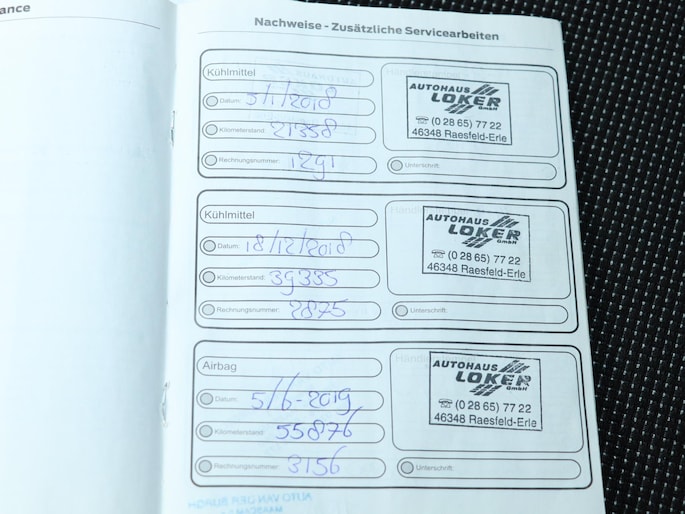 ance
Nachweise - Zusätzliche Servicearbeiten
Kühlmittel
Datum: 5/1/2018
Kilometerstand: 21358
Rechnungsnummer: 1291
AUTOHAUS
LOKER
GmbH
☏ (0 28 65) 77 22
46348 Raesfeld-Erle
Unterschrift:
Kühlmittel
Datum: 18/12/2018
Kilometerstand: 39335
Rechnungsnummer: 2875
AUTOHAUS
LOKER
GmbH
☏ (0 28 65) 77 22
46348 Raesfeld-Erle
Unterschrift:
Airbag
Datum: 5/6-2019
Kilometerstand: 55876
Rechnungsnummer: 3156
AUTOHAUS
LOKER
GmbH
☏ (0 28 65) 77 22
46348 Raesfeld-Erle
Unterschrift:
AUTO VAN DER BURGH